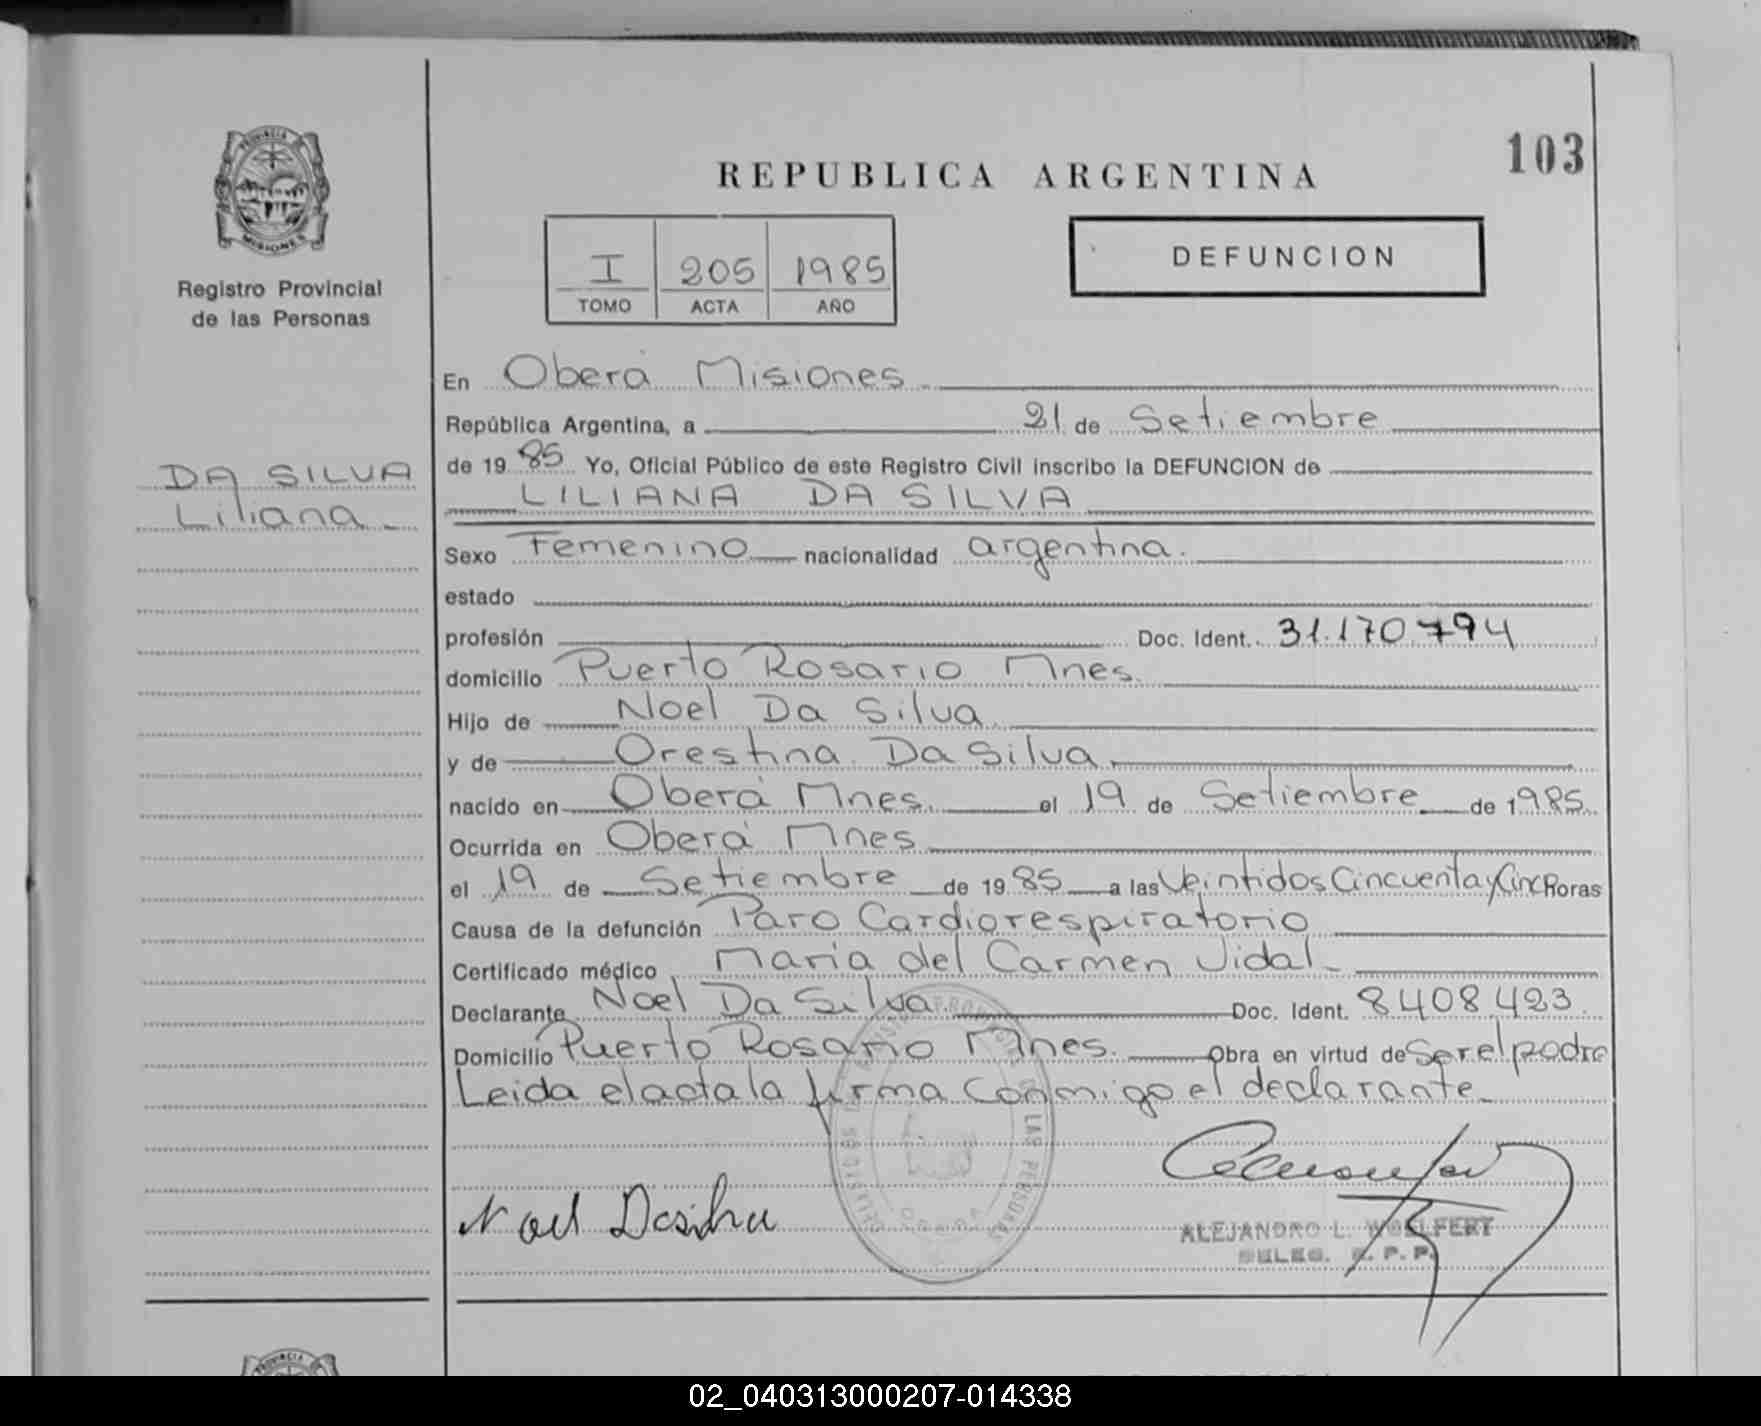 PROVINCIA
MISIONES
Registro Provincial
de las Personas
DA SILVA
Liliana
103
REPUBLICA ARGENTINA
I 205 1985
TOMO ACTA AÑO
DEFUNCION
En Oberá Misiones
República Argentina, a 21 de Setiembre
de 19 85 Yo, Oficial Público de este Registro Civil inscribo la DEFUNCION de
LILIANA DA SILVA
Sexo Femenino nacionalidad argentina.
estado
profesión Doc. Ident. 31.170.794
domicilio Puerto Rosario Mnes.
Hijo de Noel Da Silva
y de Orestina Da Silva
nacido en Oberá Mnes. el 19 de Setiembre de 1985
Ocurrida en Oberá Mnes
el 19 de Setiembre de 19 85 a las Veintidos Cincuenta y Cinc Horas
Causa de la defunción Paro Cardiorespiratorio
Certificado médico Maria del Carmen Vidal
Declarante Noel Da Silva Doc. Ident. 8408423
Domicilio Puerto Rosario Mnes. Obra en virtud de Ser el padre
Leida el acta la firma conmigo el declarante
Noel Dasilva
ALEJANDRO L. WOELFERT
DELEG. R. P. P.
PROVINCIA
02_040313000207-014338